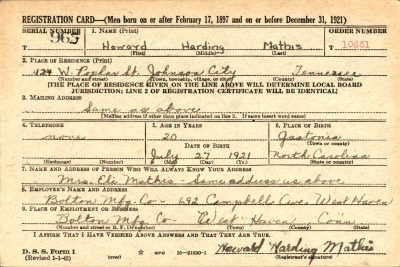 REGISTRATION CARD—(Men born on or after February 17, 1897 and on or before December 31, 1921)
SERIAL NUMBER 1. NAME (Print) ORDER NUMBER
T 965 Howard Harding Mathis T 10661
(First) (Middle) (Last)
2. PLACE OF RESIDENCE (Print)
124 W. Poplar St. Johnson City Tennessee
(Number and street) (Town, township, village, or city) (County) (State)
[THE PLACE OF RESIDENCE GIVEN ON THE LINE ABOVE WILL DETERMINE LOCAL BOARD
JURISDICTION; LINE 2 OF REGISTRATION CERTIFICATE WILL BE IDENTICAL]
3. MAILING ADDRESS
Same as above
[Mailing address if other than place indicated on line 2. If same insert word same]
4. TELEPHONE 5. AGE IN YEARS 6. PLACE OF BIRTH
none 20 Gastonia
DATE OF BIRTH (Town or county)
July 27 1921 North Carolina
(Exchange) (Number) (Mo.) (Day) (Yr.) (State or country)
7. NAME AND ADDRESS OF PERSON WHO WILL ALWAYS KNOW YOUR ADDRESS
Mrs. Mathis - same address as above
8. EMPLOYER'S NAME AND ADDRESS
Bolton Mfg. Co - 692 Campbell Ave. West Haven
9. PLACE OF EMPLOYMENT OR BUSINESS
Bolton Mfg Co West Haven Conn
(Number and street or R. F. D. number) (Town) (County) (State)
I AFFIRM THAT I HAVE VERIFIED ABOVE ANSWERS AND THAT THEY ARE TRUE.
D. S. S. Form 1 Howard Harding Mathis
(Revised 1-1-42) (over) 16—21630-1 (Registrant's signature)